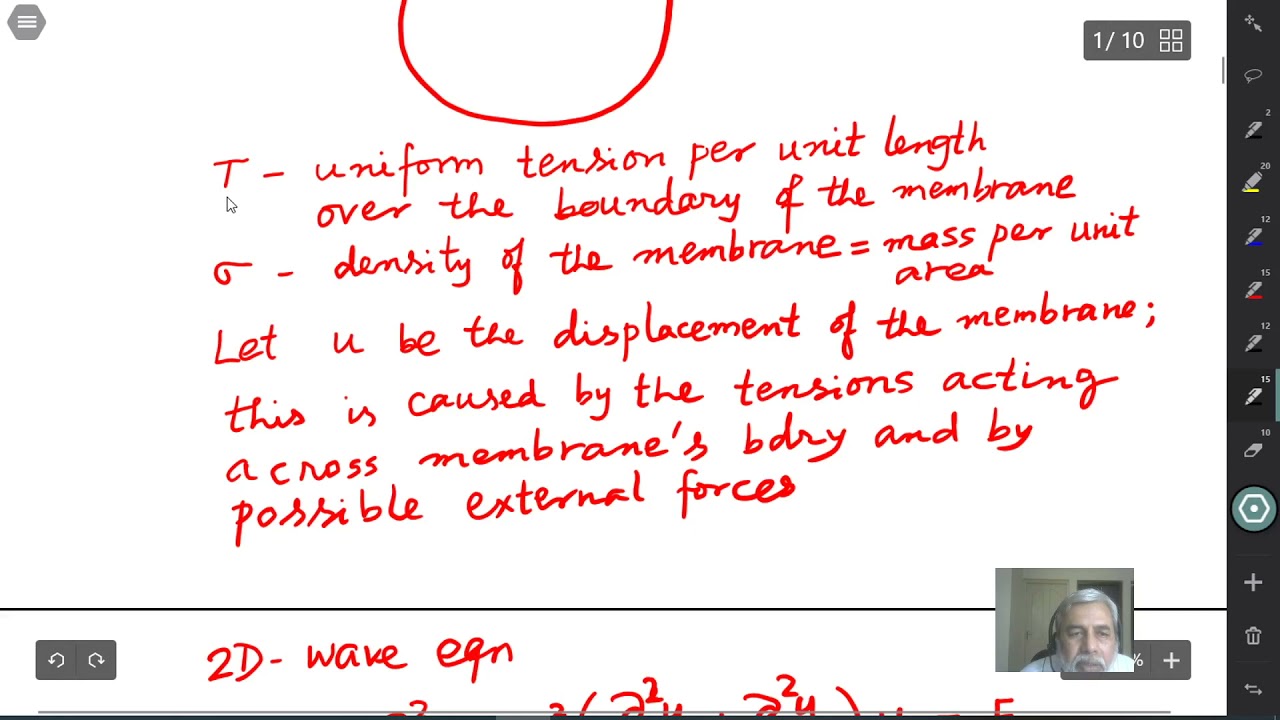 1 / 10
T - uniform tension per unit length
over the boundary of the membrane
σ - density of the membrane = mass per unit
area
Let u be the displacement of the membrane;
this is caused by the tensions acting
across membrane's bdry and by
possible external forces
2D- wave eqn
2
20
12
15
12
15
10
%